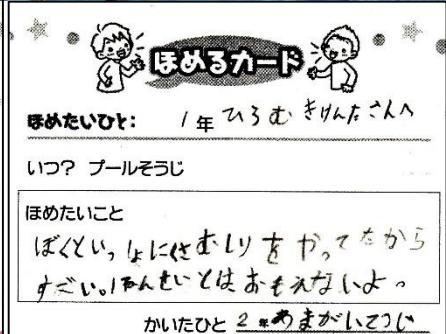 ほめるカード
ほめたいひと: 1年 ひろむ きけんたさんへ
いつ? プールそうじ
ほめたいこと
ぼくといっしょにくさむしりをやってたから
すごい。1ねんせいとはおもえないよ。
かいたひと 2年